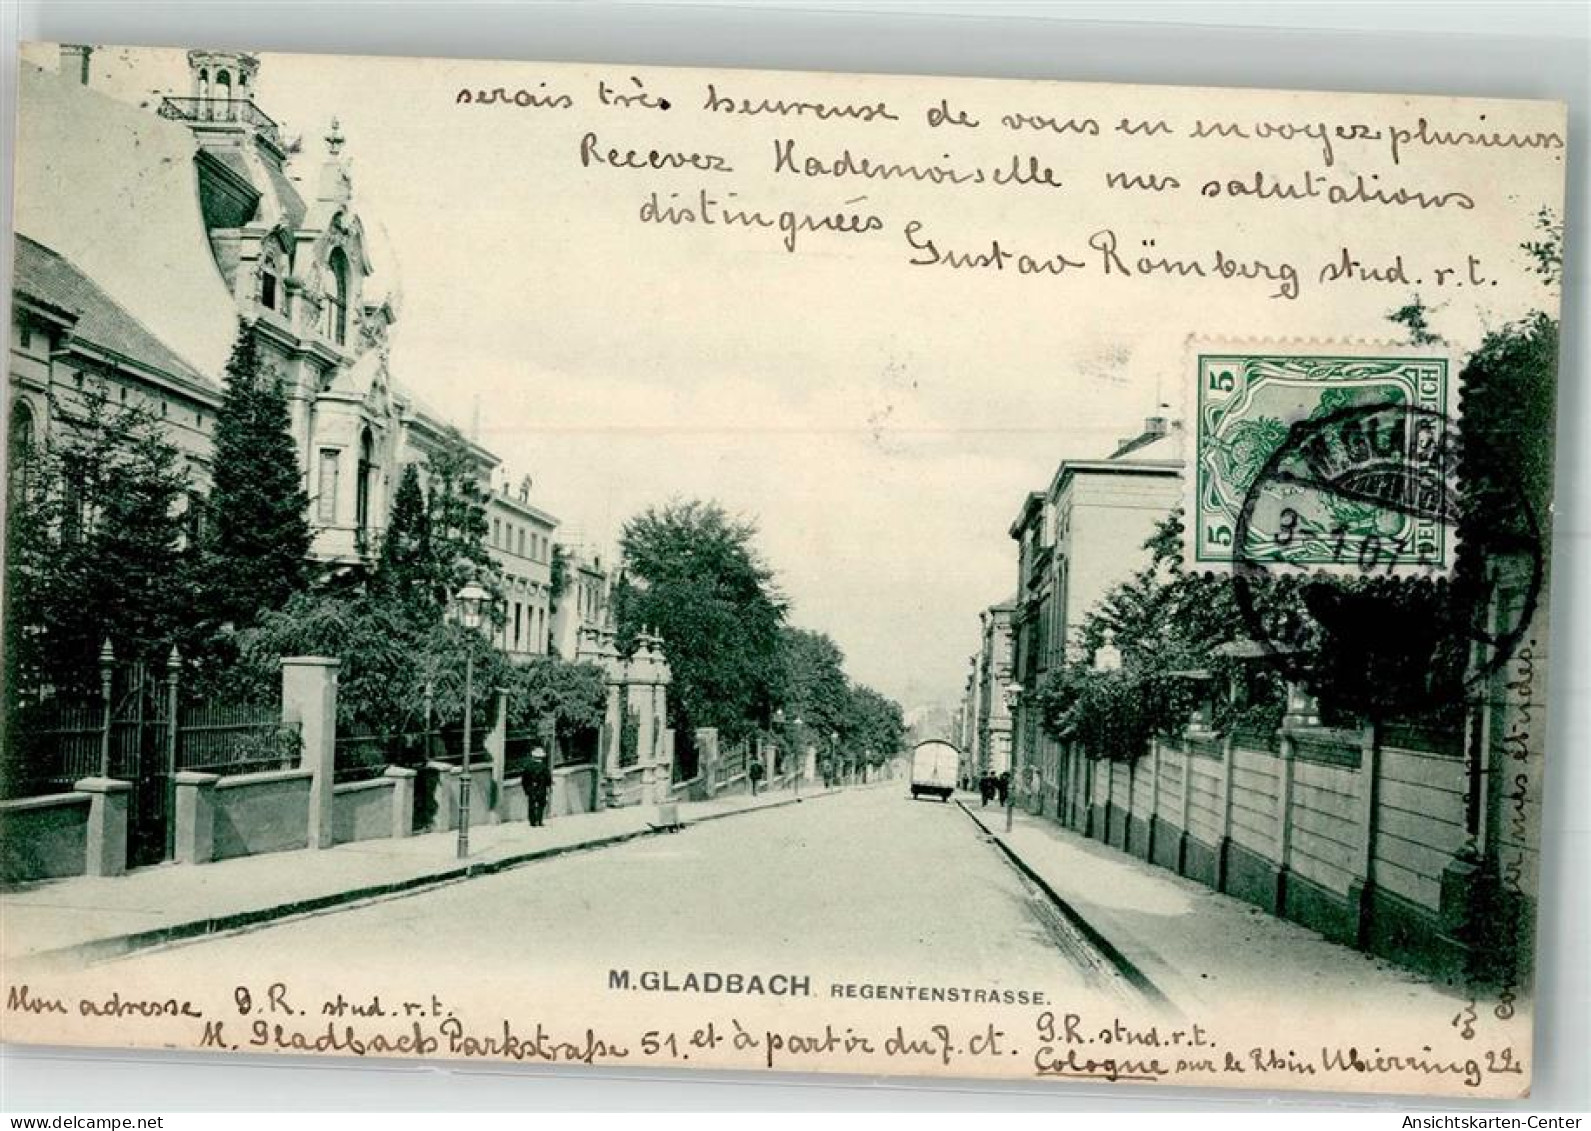 serais très heureuse de vous en envoyez plusieurs
Recevez Mademoiselle mes salutations
distinguées
Gustav Römberg stud. r. t.
5
5
M. GLADB
3-1 07
REICH
M. GLADBACH. REGENTENSTRASSE.
Mon adresse G. R. stud. r. t.
M. Gladbach Parkstraße 51. et à partir du 7. ct.
G. R. stud. r. t.
Cologne sur le Rhin Ubierring 22
continuer mes études.
delcampe.net
Ansichtskarten-Center